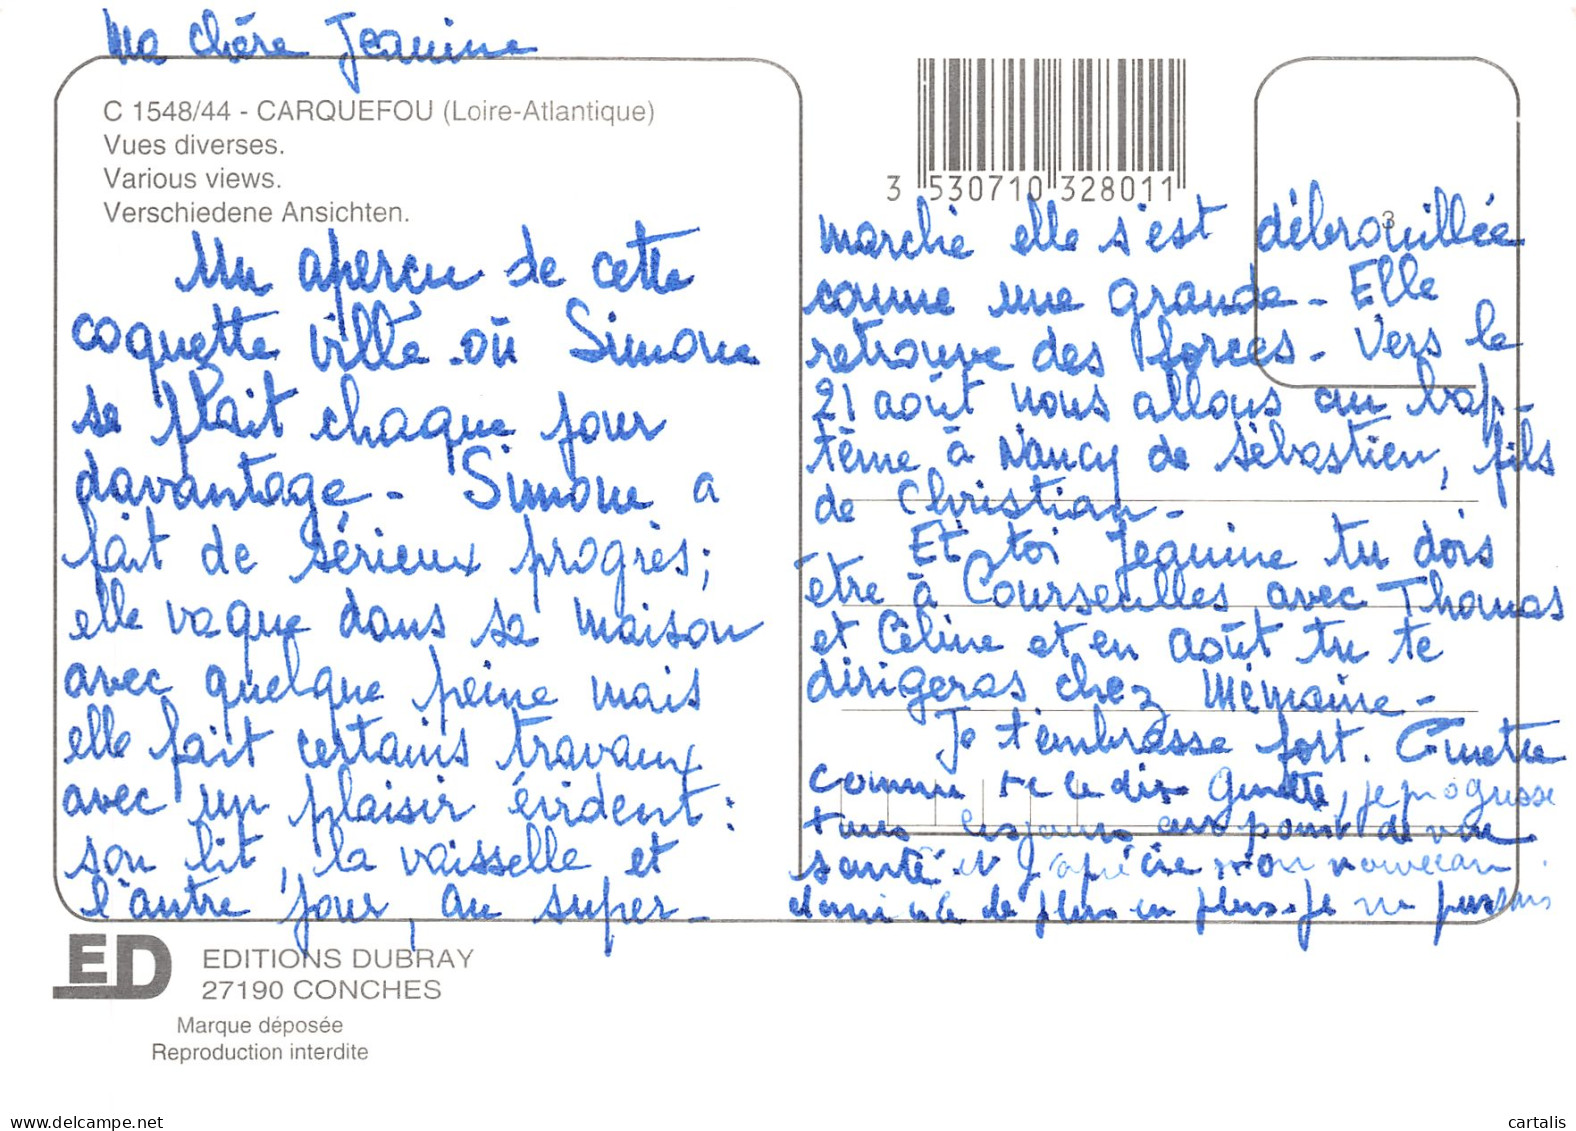 Ma chère Jeanine
C 1548/44 - CARQUEFOU (Loire-Atlantique)
Vues diverses.
Various views.
Verschiedene Ansichten.
Un aperçu de cette
coquette ville où Simone
se plait chaque jour
davantage - Simone a
fait de sérieux progrès;
elle vaque dans sa maison
avec quelque peine mais
elle fait certains travaux
avec un plaisir évident:
son lit, la vaisselle et
l'autre jour, au super-
ED
EDITIONS DUBRAY
27190 CONCHES
Marque déposée
Reproduction interdite
3 530710 328011
3
marché elle s'est débrouillée
comme une grande - Elle
retrouve des forces - Vers le
21 août nous allons au bap-
tême à Nancy de Sébastien, fils
de Christian -
Et toi Jeanine tu dois
être à Courseulles avec Thomas
et Céline et en août tu te
dirigeras chez Mémaine -
Je t'embrasse fort. Ginette
comme te le dis Ginette, je progresse
tous les jours au point de vue
santé. et j'apprécie mon nouveau
domicile de plus en plus. je ne puis
cartalis
www.delcampe.net